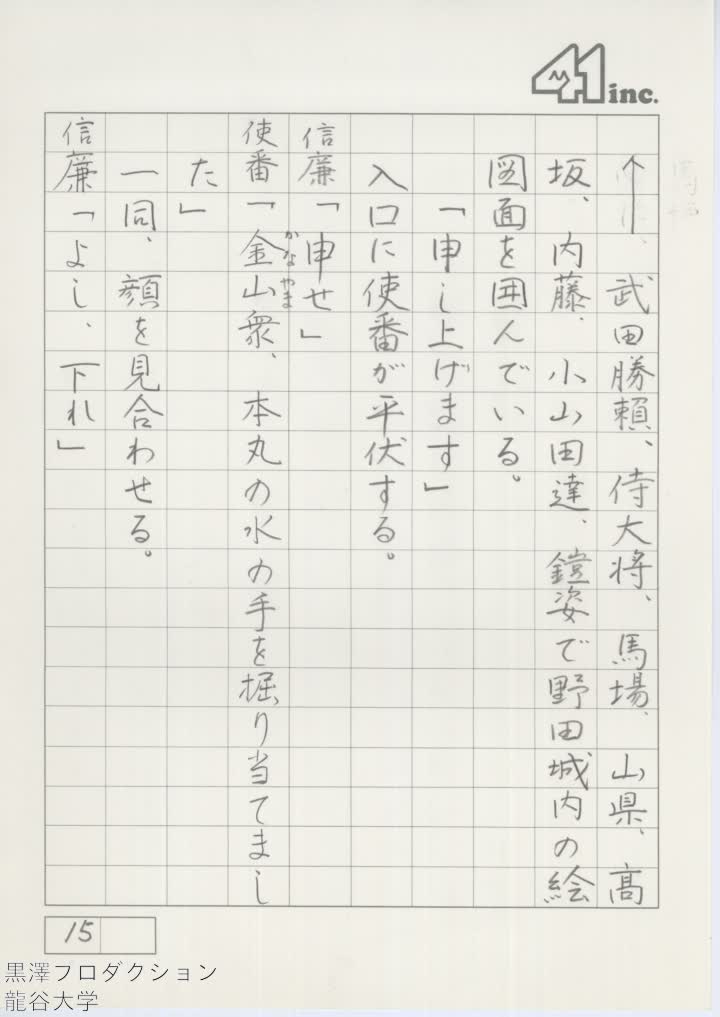 41 inc.
↑、武田勝頼、侍大将、馬場、山県、高
坂、内藤、小山田達、鎧姿で野田城内の絵
図面を囲んでいる。
「申し上げます」
入口に使番が平伏する。
信廉「申せ」
使番「金山衆、本丸の水の手を掘り当てまし
かなやま
た」
一同、顔を見合わせる。
信廉「よし、下れ」
15
黒澤プロダクション
龍谷大学